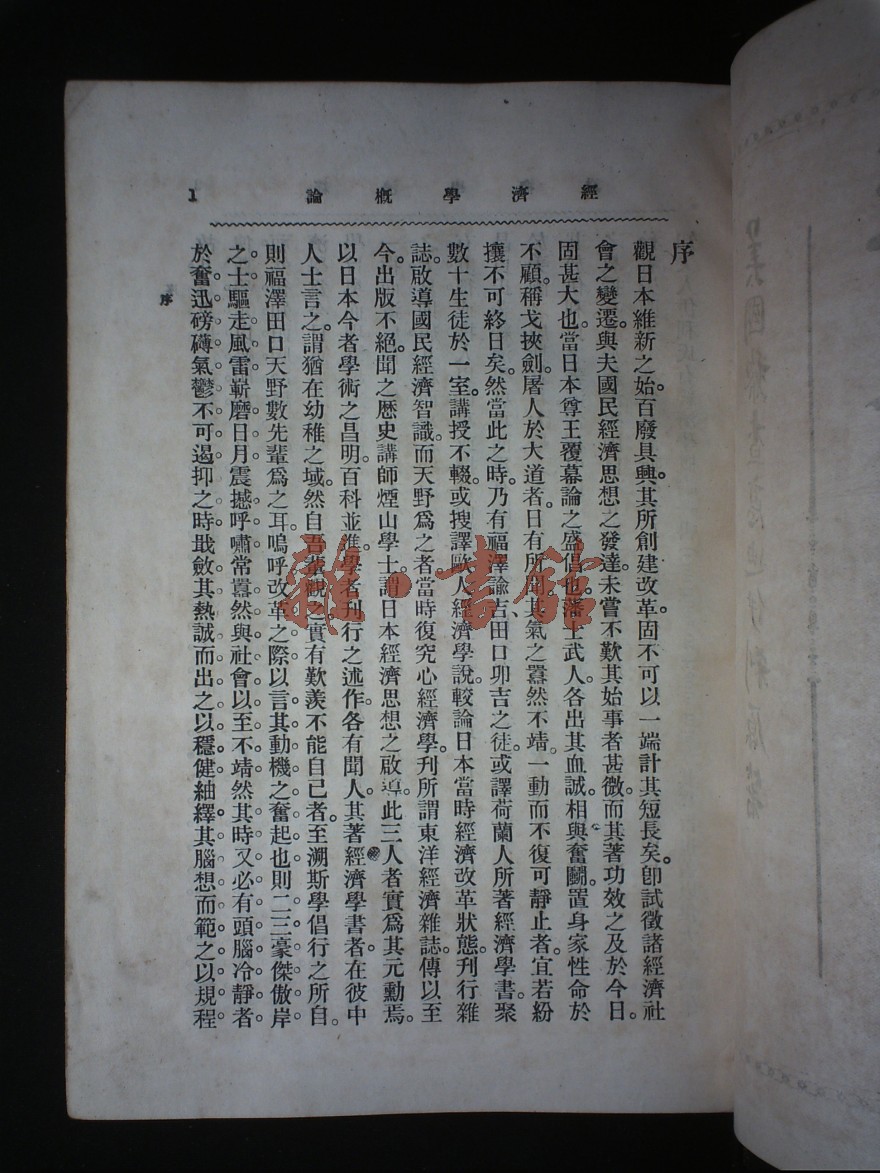 經濟學概論
1
序
觀日本維新之始。百廢具興。其所創建改革。固不可以一端計其短長矣。卽試徵諸經濟社
會之變遷。與夫國民經濟思想之發達。未嘗不歎其始事者甚微。而其著功效之及於今日。
固甚大也。當日本尊王覆幕論之盛倡也。藩士武人。各出其血誠。相與奮鬭。置身家性命於
不顧。稱戈挾劍。屠人於大道者。日有所聞。其氣之囂然不靖。一動而不復可靜止者。宜若紛
攘不可終日矣。然當此之時。乃有福澤諭吉、田口卯吉之徒。或譯荷蘭人所著經濟學書。聚
數十生徒於一室。講授不輟。或搜譯歐人經濟學說。較論日本當時經濟改革狀態。刊行雜
誌。啟導國民經濟智識。而天野爲之者當時復究心經濟學。刊所謂東洋經濟雜誌。傳以至
今。出版不絕。聞之歷史講師煙山學士。謂日本經濟思想之啟導。此三人者實爲其元勳焉。
以日本今者學術之昌明。百科並進。學者刊行之述作。各有聞人。其著經濟學書者。在彼中
人士言之。謂猶在幼稚之域。然自吾輩觀之。實有歎羨不能自已者。至溯斯學倡行之所自。
則福澤田口天野數先輩爲之耳。嗚呼改革之際。以言其動機之奮起也。則二三豪傑傲岸
之士。驅走風雷。嶄磨日月。震撼呼嘯。常囂然與社會以至不靖。然其時又必有頭腦冷靜者。
於奮迅磅礴氣鬱不可遏抑之時。戢斂其熱誠而出之以穩健。紬繹其腦想而範之以規程
序
雜·書館